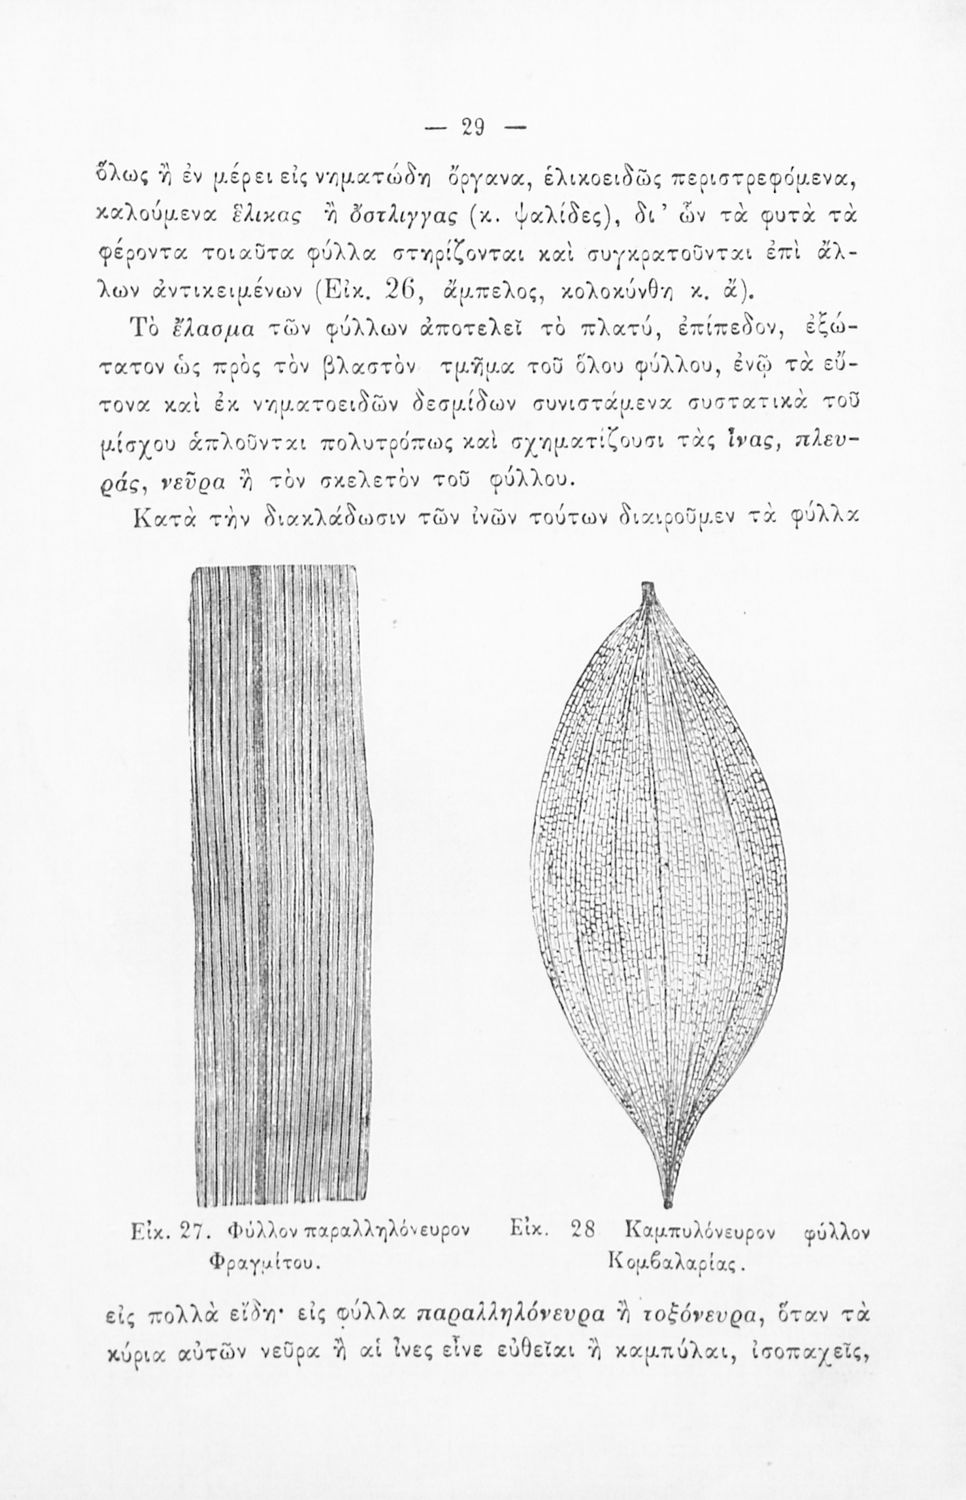 — 29 —
ὅλως ἢ ἐν μέρει εἰς νηματώδη ὄργανα, ἑλικοειδῶς περιστρεφόμενα,
καλούμενα ἕλικας ἢ ὄστλιγγας (κ. ψαλίδες), δι’ ὧν τὰ φυτὰ τὰ
φέροντα τοιαῦτα φύλλα στηρίζονται καὶ συγκρατοῦνται ἐπὶ ἄλ-
λων ἀντικειμένων (Εἰκ. 26, ἄμπελος, κολοκύνθη κ. ἄ).
Τὸ ἔλασμα τῶν φύλλων ἀποτελεῖ τὸ πλατύ, ἐπίπεδον, ἐξώ-
τατον ὡς πρὸς τὸν βλαστὸν τμῆμα τοῦ ὅλου φύλλου, ἐνῷ τὰ εὔ-
τονα καὶ ἐκ νηματοειδῶν δεσμίδων συνιστάμενα συστατικὰ τοῦ
μίσχου ἁπλοῦνται πολυτρόπως καὶ σχηματίζουσι τὰς ἶνας, πλευ-
ράς, νεῦρα ἢ τὸν σκελετὸν τοῦ φύλλου.
Κατὰ τὴν διακλάδωσιν τῶν ἰνῶν τούτων διαιροῦμεν τὰ φύλλα
Εἰκ. 27. Φύλλον παραλληλόνευρον
Φραγμίτου.
Εἰκ. 28 Καμπυλόνευρον φύλλον
Κομβαλαρίας.
εἰς πολλὰ εἴδη· εἰς φύλλα παραλληλόνευρα ἢ τοξόνευρα, ὅταν τὰ
κύρια αὐτῶν νεῦρα ἢ αἱ ἶνες εἶνε εὐθεῖαι ἢ καμπύλαι, ἰσοπαχεῖς,